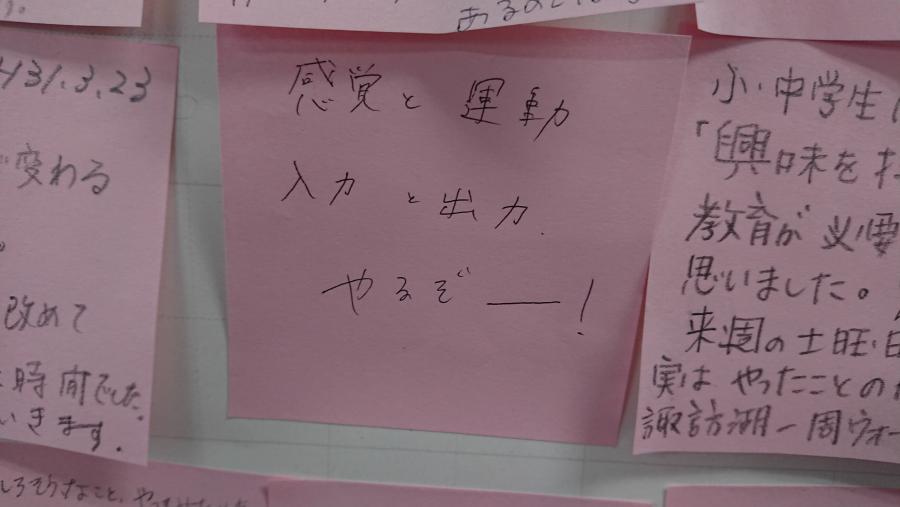 あるのでは
H31.3.23
変わる
改めて
時間でした。
いきます。
感覚と運動
入力と出力.
やるぞ――!
小・中学生
「興味を
教育が必要
思いました。
来週の土日
実はやったことの
諏訪湖一周ウォー